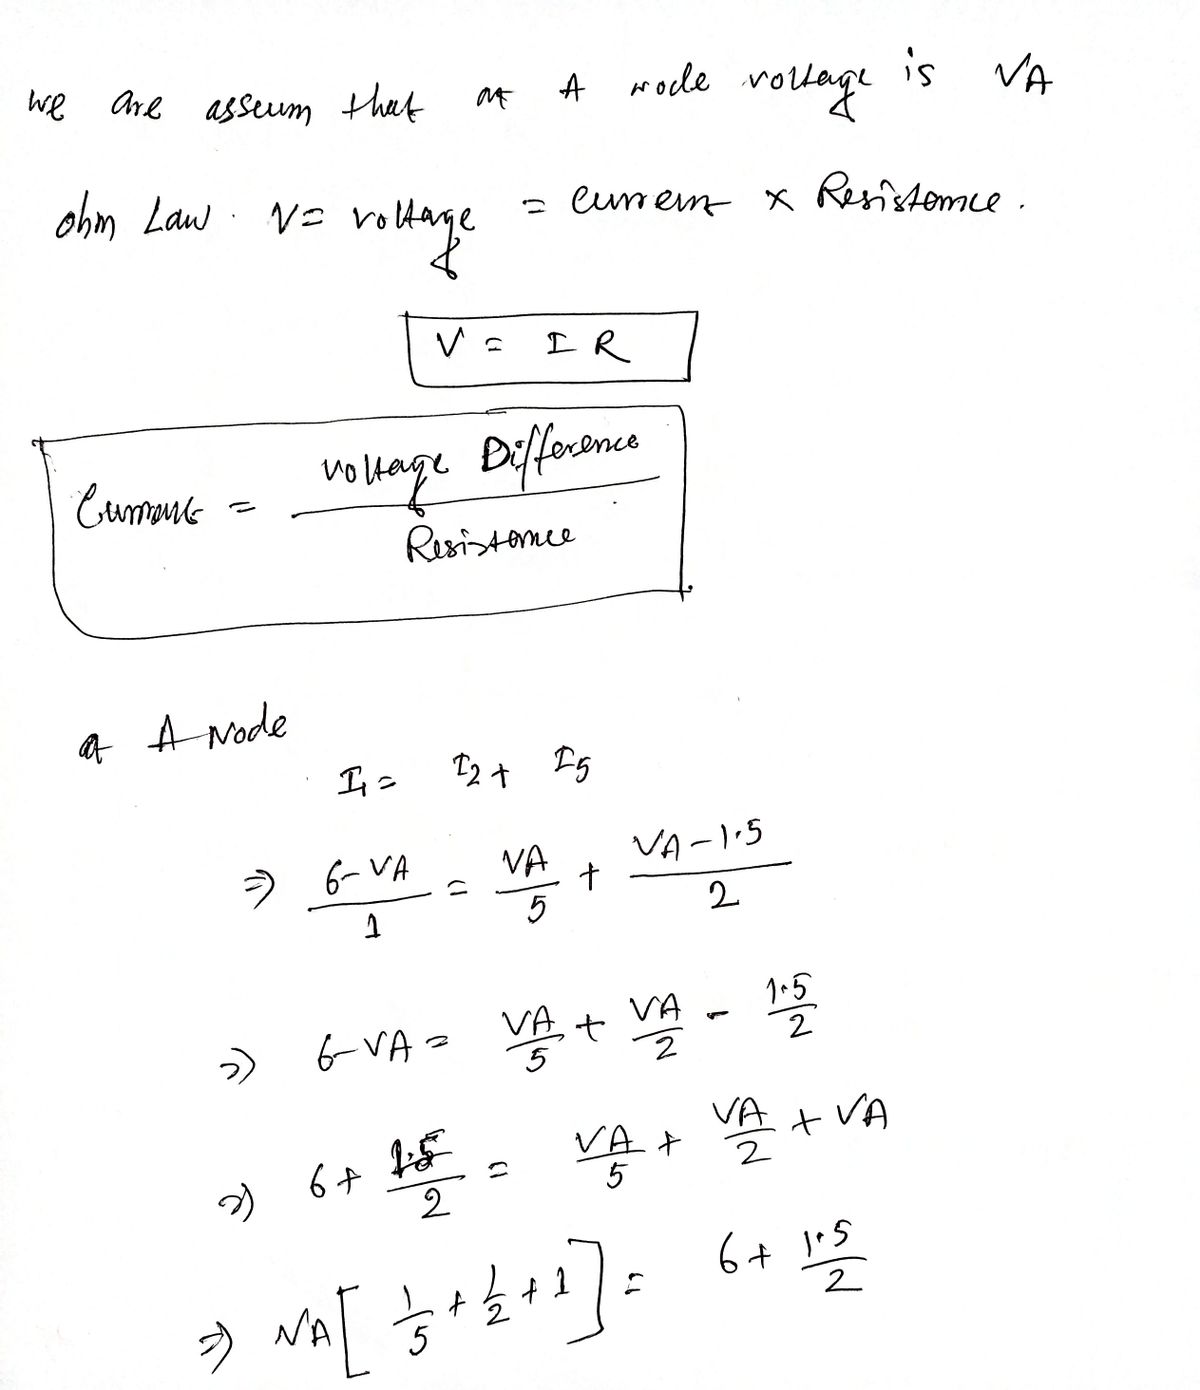 we are assum that at A node voltage is VA
ohm Law . V = voltage = current × Resistance .
V = I R
Current = Voltage Difference / Resistance
at A Node
I1 = I2 + I5
⇒ (6 - VA)/1 = VA/5 + (VA - 1.5)/2
⇒ 6 - VA = VA/5 + VA/2 - 1.5/2
⇒ 6 + 1.5/2 = VA/5 + VA/2 + VA
⇒ VA [ 1/5 + 1/2 + 1 ] = 6 + 1.5/2